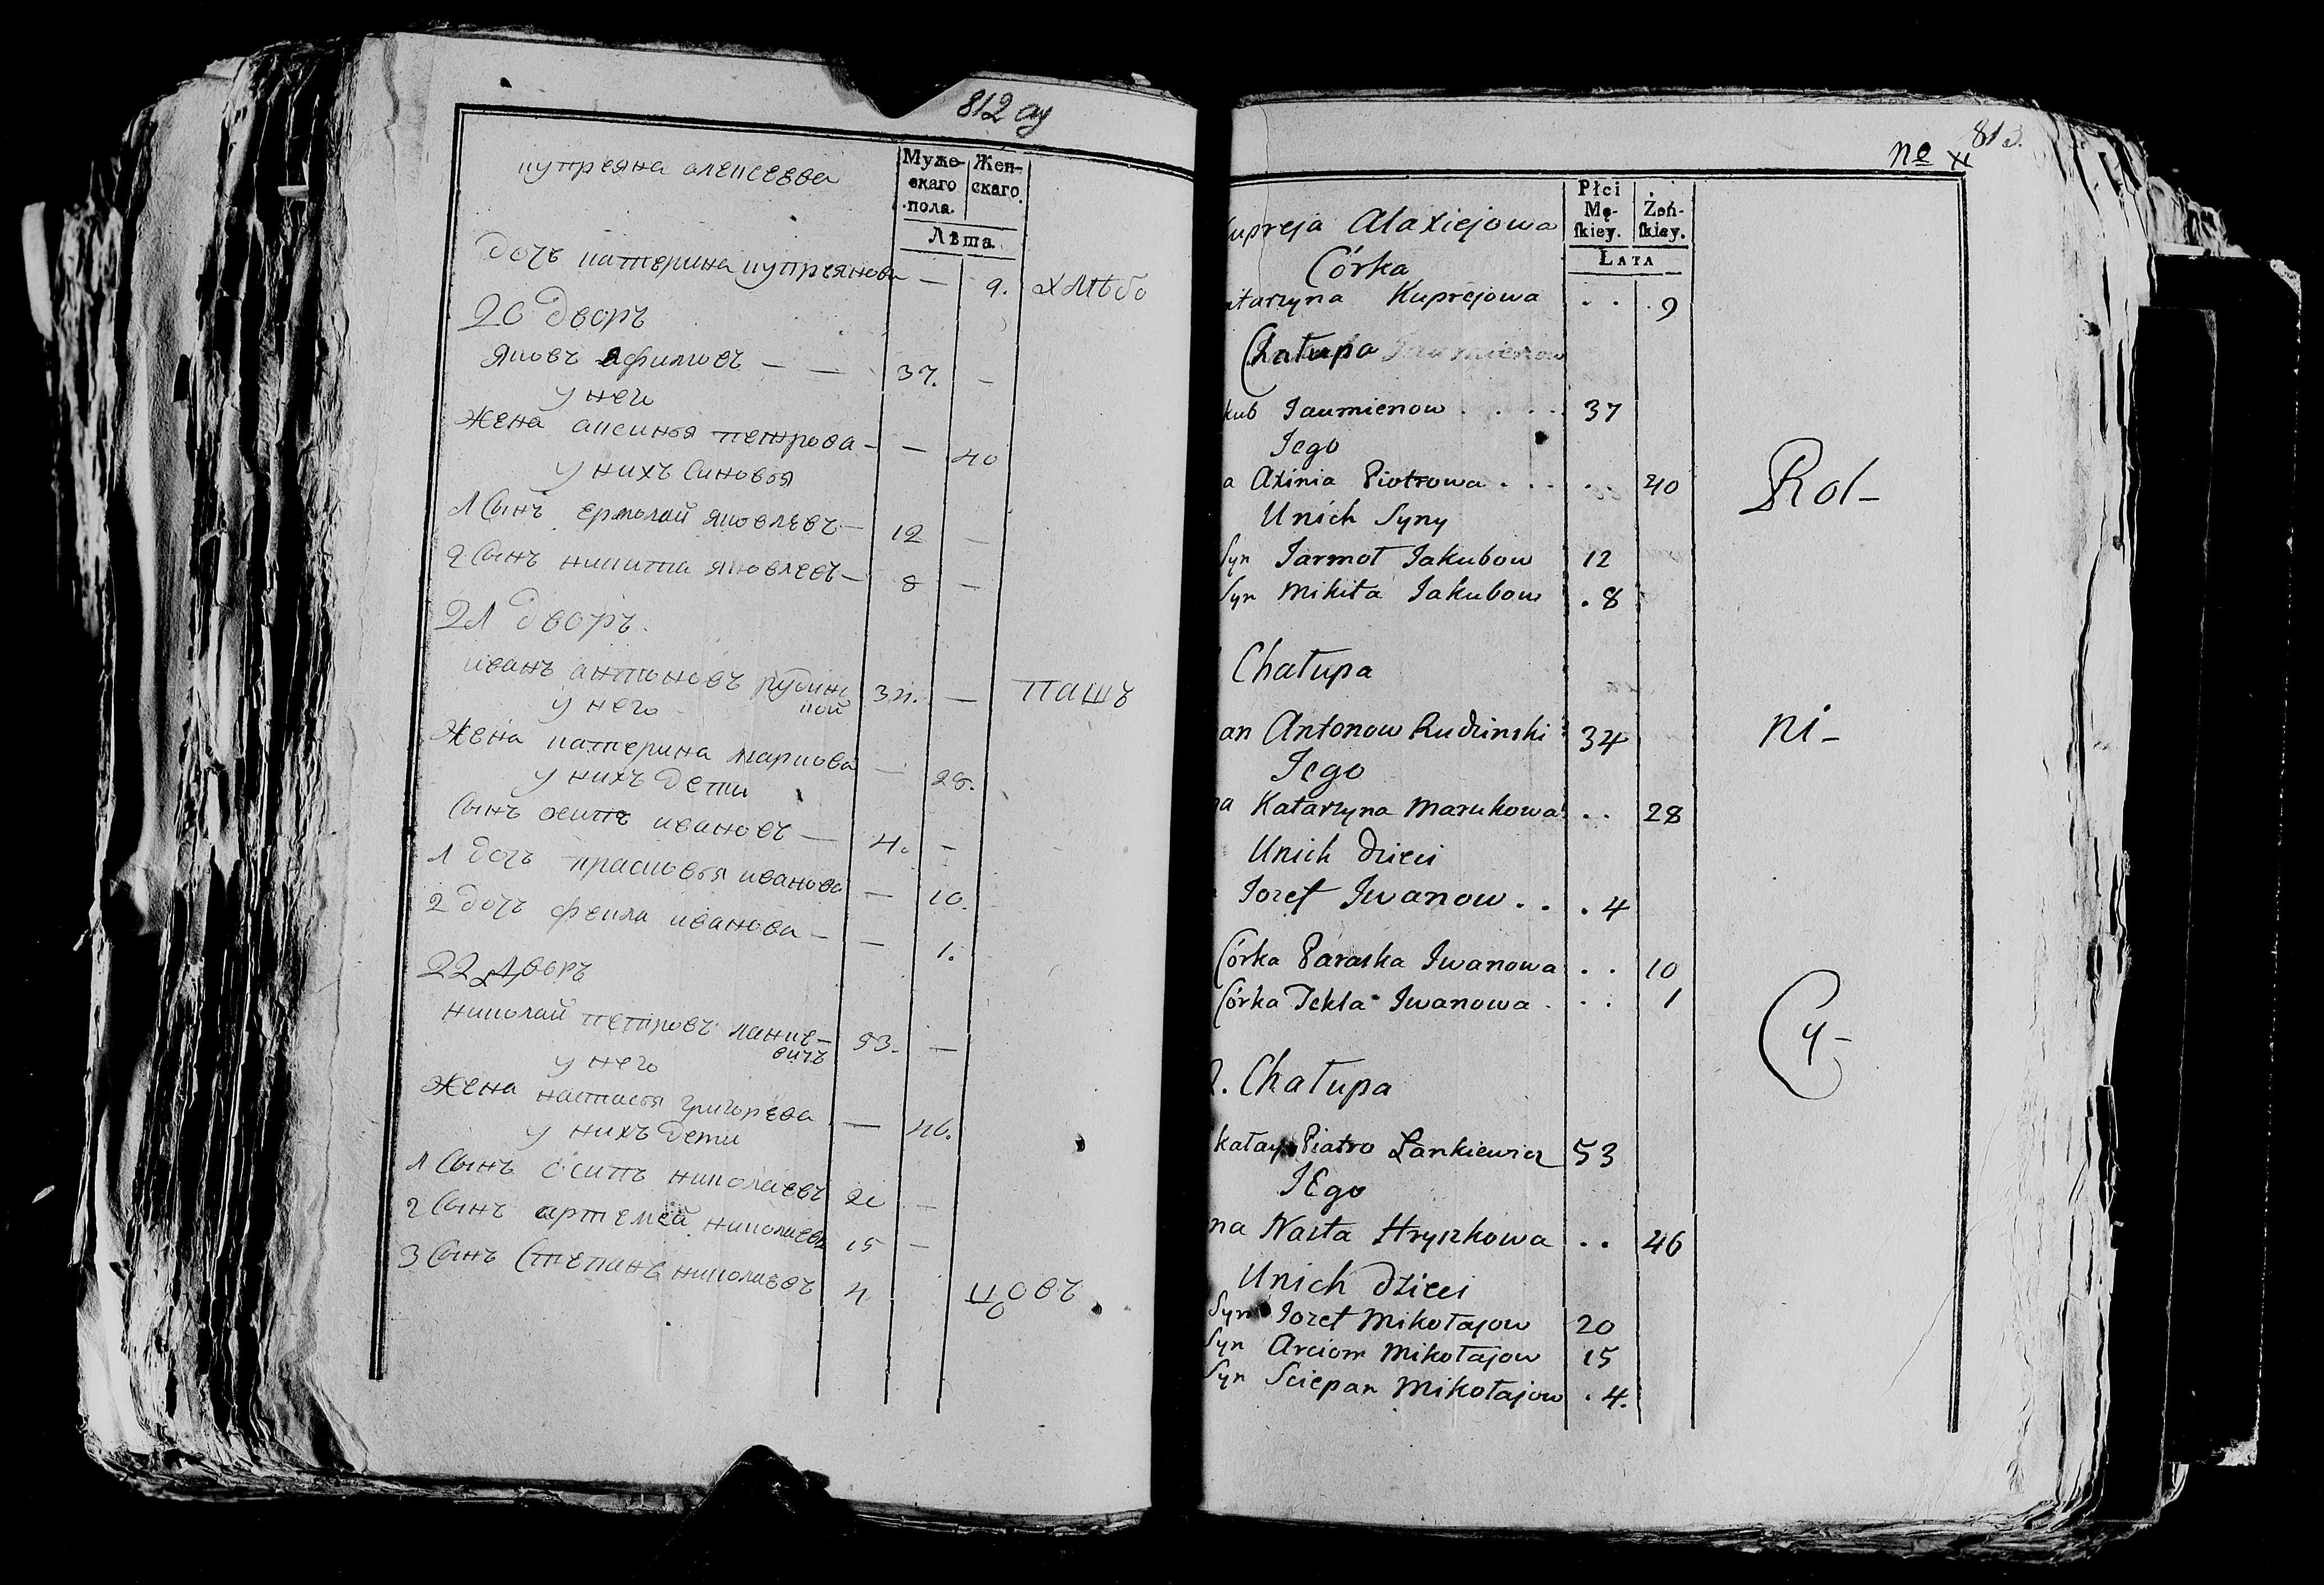 812 оу
купреяна алексеева
Муже-
скаго
пола.
Жен-
скаго.
Лѣта
дочь катерина купреянова — 9. хлѣбо
20 дворъ
яковъ — — 37. —
у него
жена аксинья петрова — — 40
у нихъ синовья
1 сынъ ермолай яковлевъ — 12 —
2 сынъ никита яковлевъ — 8 —
21 дворъ
иванъ антоновъ рудинс
кой 34. — пашъ
у него
жена катерина маркова — 28.
у нихъ дети
сынъ осипъ ивановъ — 4. —
1 дочь прасковья иванова — 10.
2 дочь фекла иванова — — 1.
22 дворъ
николай петровъ ланке-
вичъ 53. —
у него
жена настасья григорева — 46.
у нихъ дети
1 сынъ осипъ николаевъ 20 —
2 сынъ артемей николаевъ 15 —
3 сынъ степанъ николаевъ 4 цовъ
813.
No
Płci
Mę-
skiey.
Żeń-
skiey.
Lata
upreja Alaxiejowa
Córka
atarzyna Kuprejowa . . . 9
Chałupa
kub Jaumienow . . . . 37
Jego
a Axinia Piotrowa . . . . . 40
Unich Syny
Syn Jarmoł Jakubow 12
Syn Mikita Jakubow . 8
Rol-
Chałupa
an Antonow Rudzinski 34
ni-
Jego
na Katarzyna Marukowa . . 28
Unich dzieci
Jozef Iwanow . . . 4
Córka Paraska Iwanowa . . 10
Córka Tekla Iwanowa . . . 1
Cy-
2. Chałupa
kołay Piatro Łankiewicz 53
JEgo
na Nasta Hryszkowa . . 46
Unich dzieci
Syn Jozef Mikołajow 20
Syn Arciom Mikołajow 15
Syn Sciepan Mikołajow . 4.